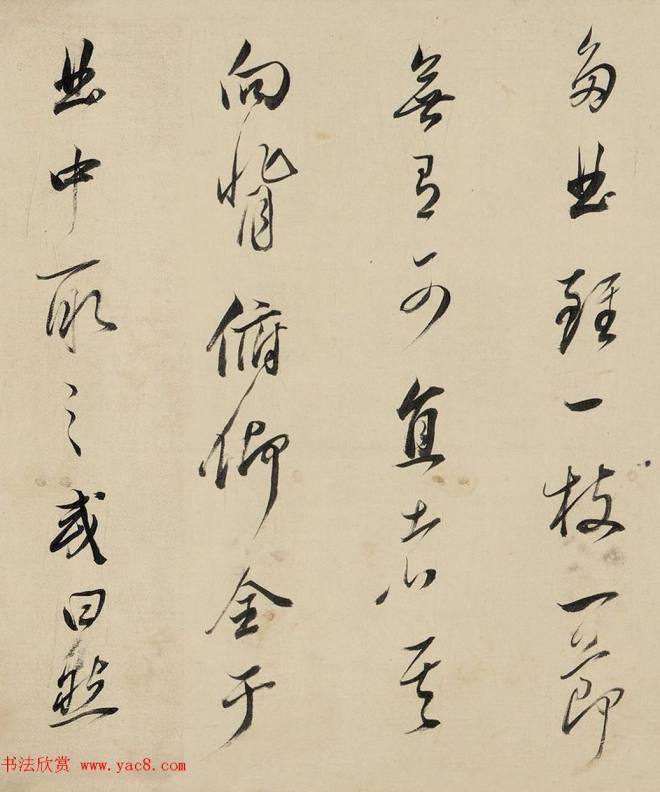 多曲雖一枝一節
無有可直者其
向背俯仰全于
曲中取之或曰然
书法欣赏 www.yac8.com